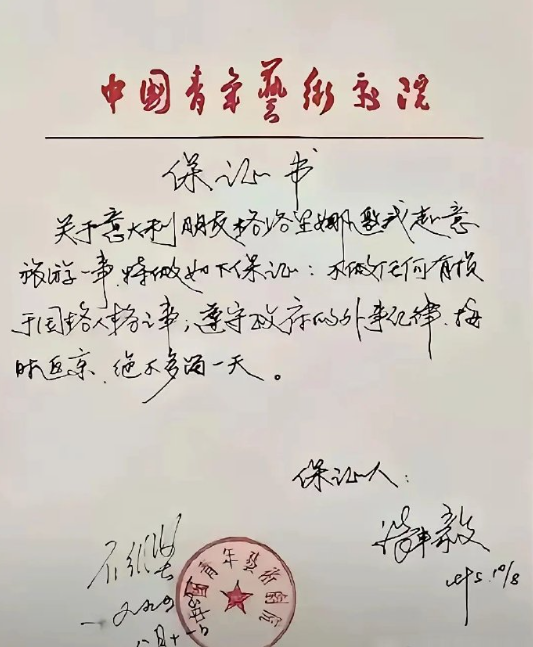 中国青年艺术剧院
保证书
关于意大利朋友格洛里娅邀我赴意
旅游一事,特做如下保证:不做任何有损
于国格人格之事;遵守政府的外事纪律,按
时返京,绝不多留一天。
保证人:
10/8
中国青年艺术剧院